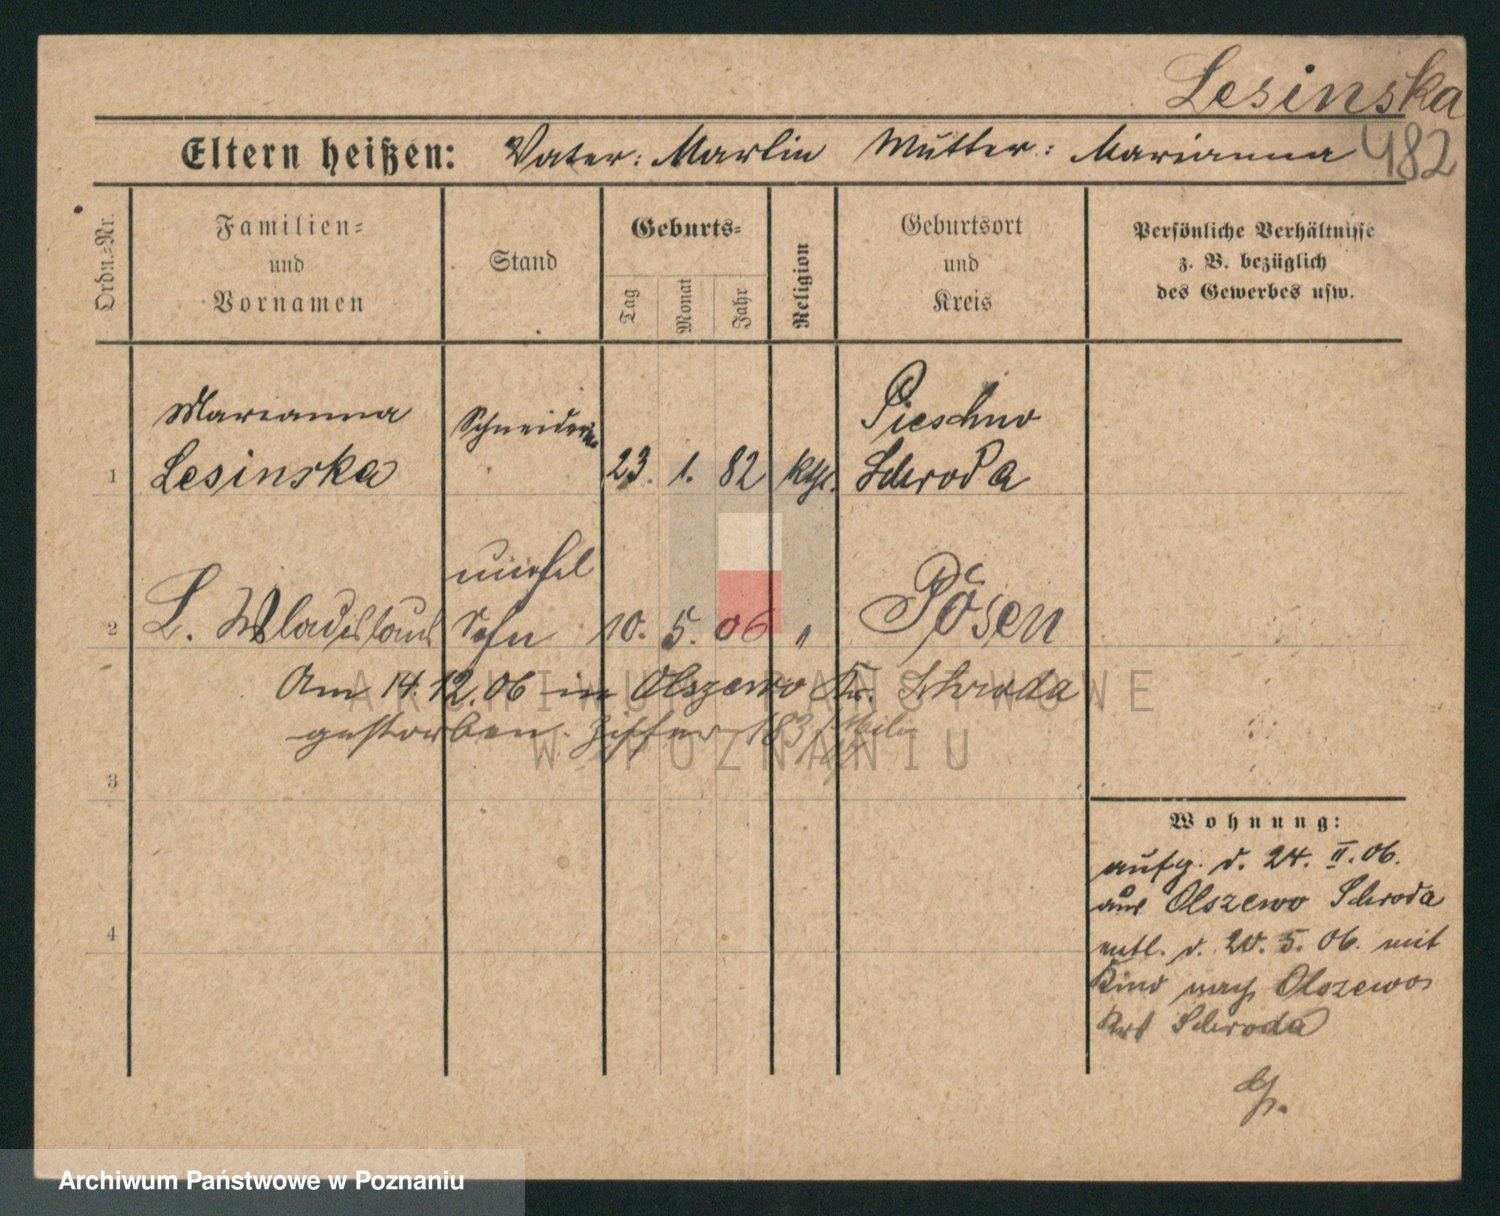 Lesinska
482
Eltern heißen: Vater: Martin Mutter: Marianna
Ordn.-Nr.
Familien-
und
Vornamen
Stand
Geburts-
Tag
Monat
Jahr
Religion
Geburtsort
und
Kreis
Persönliche Verhältnisse
z. B. bezüglich
des Gewerbes usw.
Marianna
Schneiderin
Pieschno
1 Lesinska 23. 1. 82 kth. Schroda
unehel
2 L. Wladislaus Sohn 10. 5. 06 " Posen
Am 14. 12. 06 in Olszewo Kr. Schroda
gestorben. Ziffer
3
4
Wohnung:
aufg. d. 24. II. 06.
aus Olszewo Schroda
entl. d. 20. 5. 06. mit
Kind nach Olszewo
Krs Schroda
ARCHIWUM PAŃSTWOWE
W POZNANIU
Archiwum Państwowe w Poznaniu